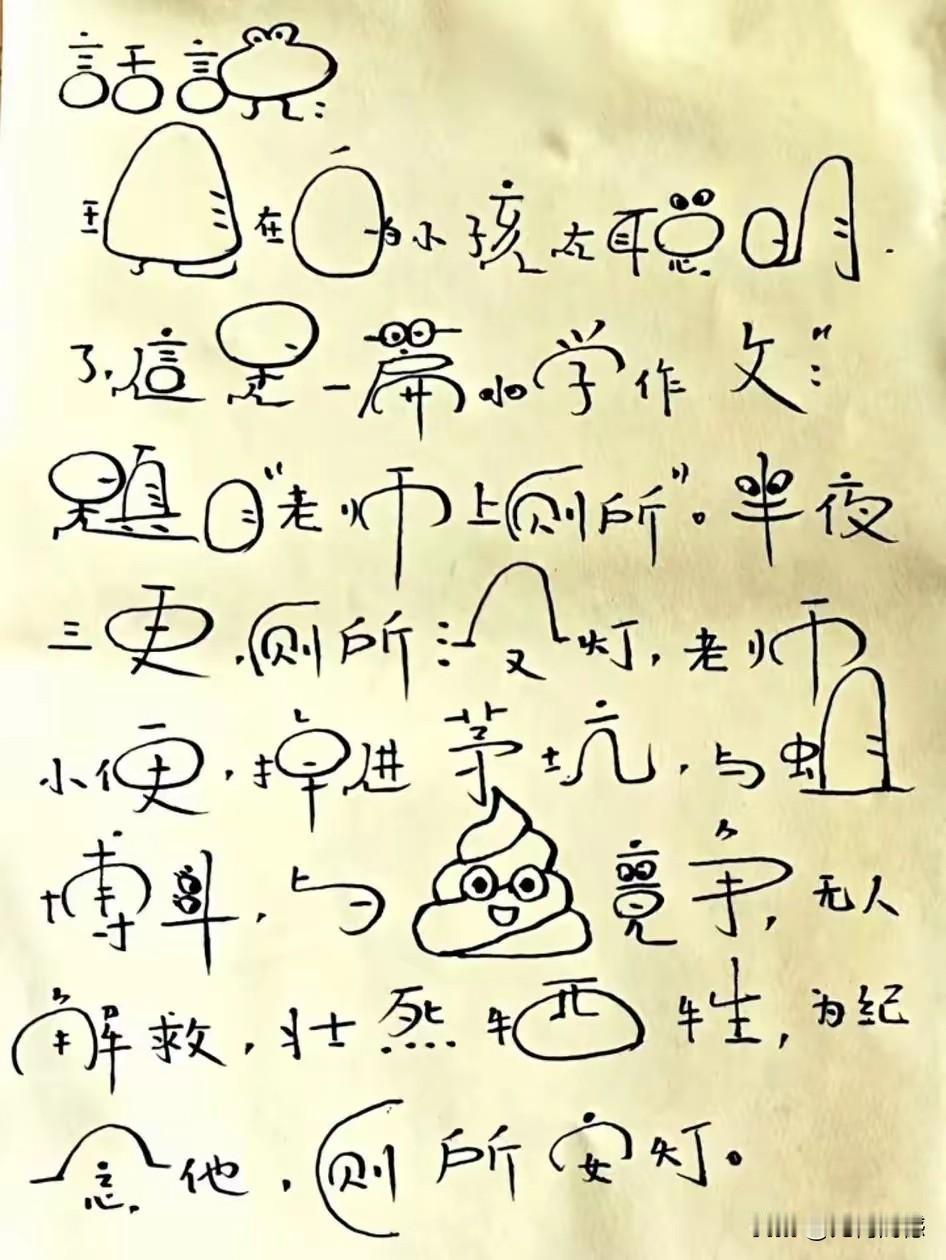 話說:
現在的小孩太聪明
了,這是一篇小学作文":
題目"老师上厕所"。半夜
三更,厕所没灯,老师
小便,掉进茅坑,与蛆
博斗,与💩竟争,无人
解救,壮烈牺牲,为纪
念他,厕所安灯。